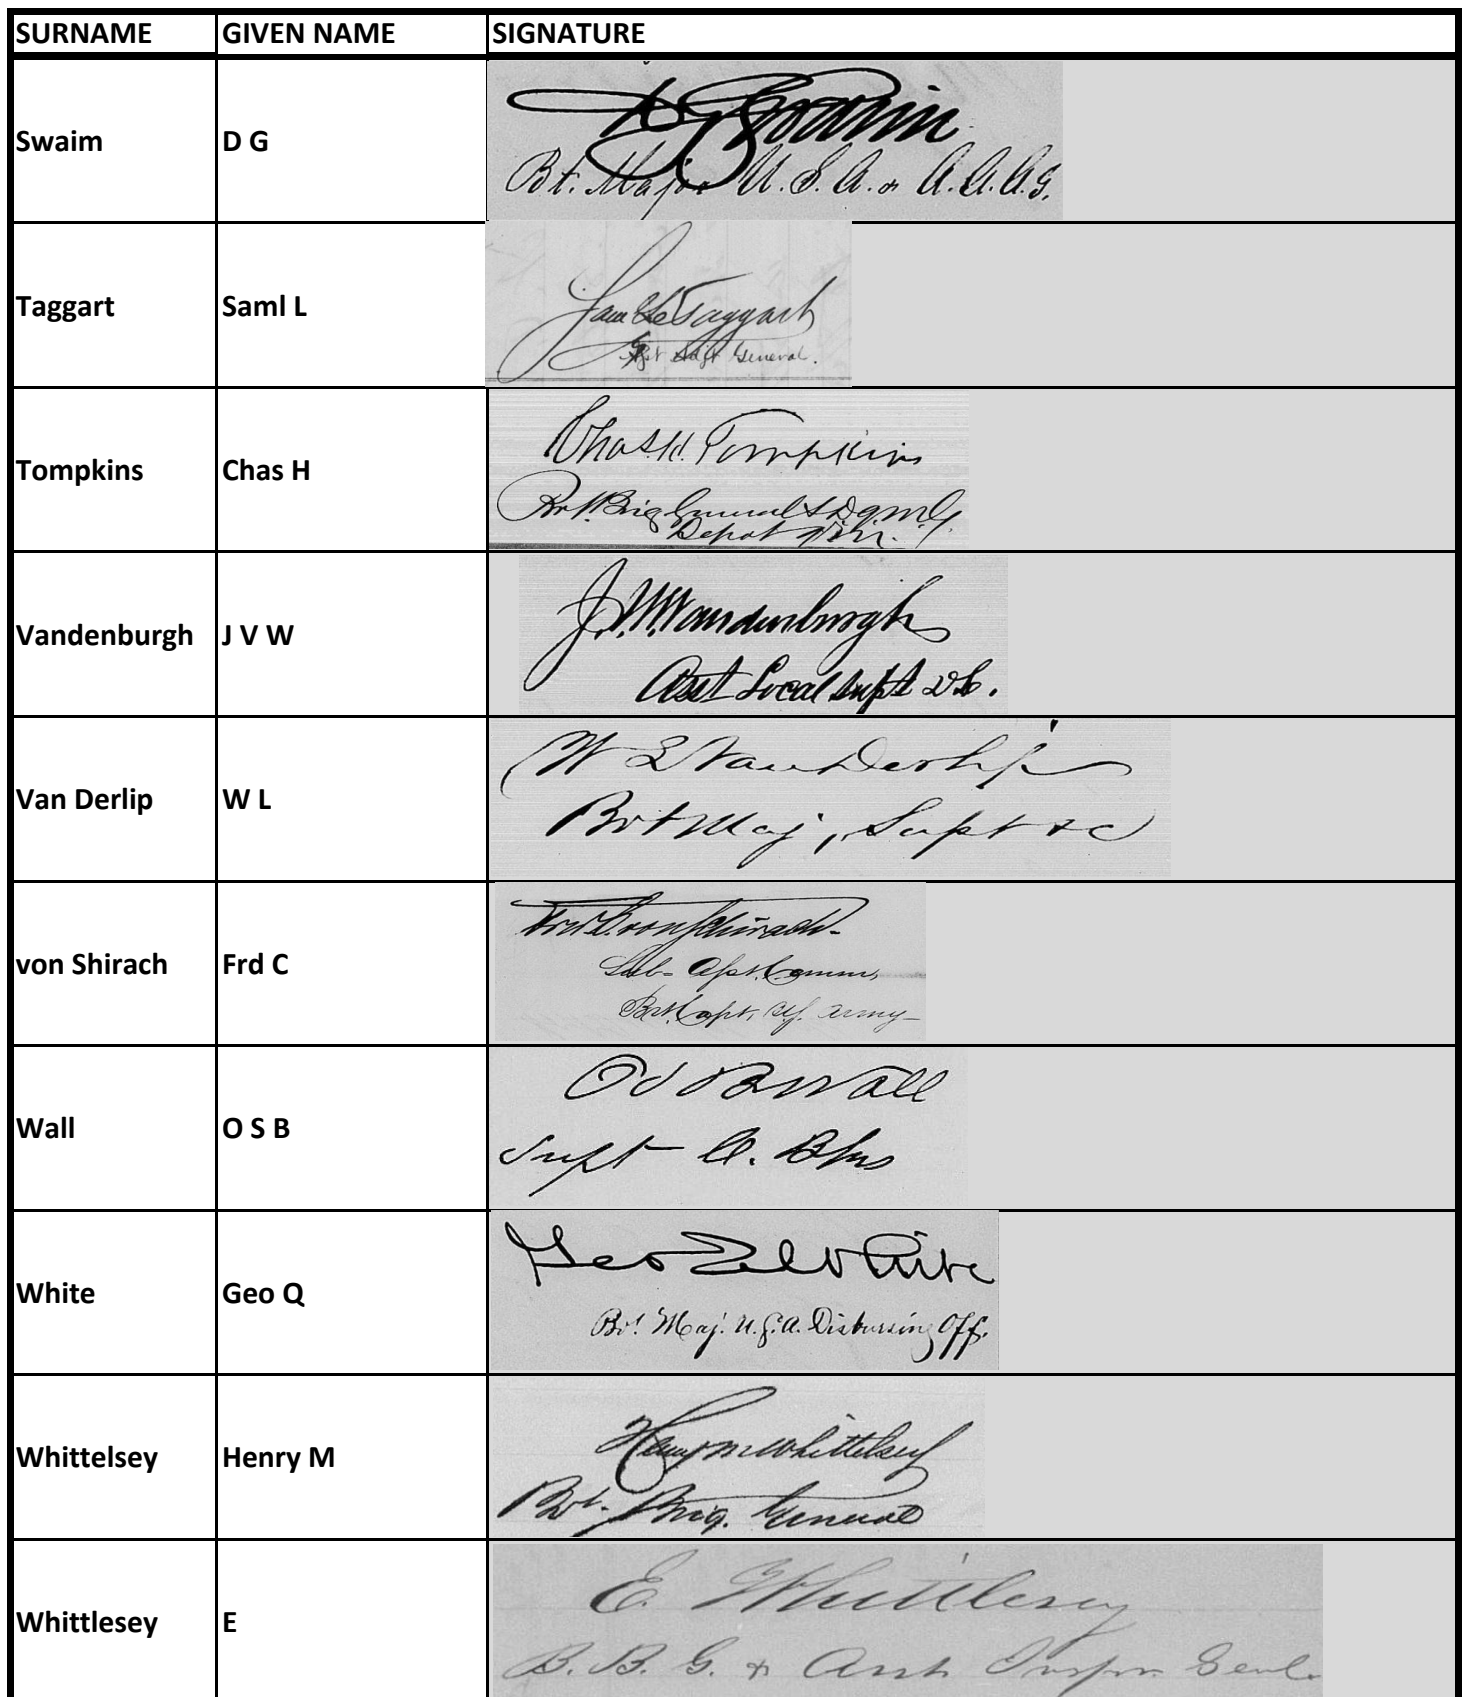 SURNAME GIVEN NAME SIGNATURE
Swaim D G D G Swaim
Bt. Major U.S.A. & A.A.A.G.
Taggart Saml L Saml L Taggart
Asst Adjt General.
Tompkins Chas H Chas H. Tompkins
Bvt. Brig General & D.Q.M.G.
Depot
Vandenburgh J V W J.V.W. Vandenburgh
Asst Local Supt D.C.
Van Derlip W L W L Van Derlip
Bvt Maj, Supt &c
von Shirach Frd C Frd C. von Schirach.
Sub-Asst. Comm,
Bvt. Capt, U.S. Army
Wall O S B O S B Wall
Supt
White Geo Q Geo Q White
Bvt Maj. U.S.A. Disbursing Off.
Whittelsey Henry M Henry M Whittelsey
Bvt. Brig. General
Whittlesey E E. Whittlesey
B. B. G. & Asst Inspr Genl.